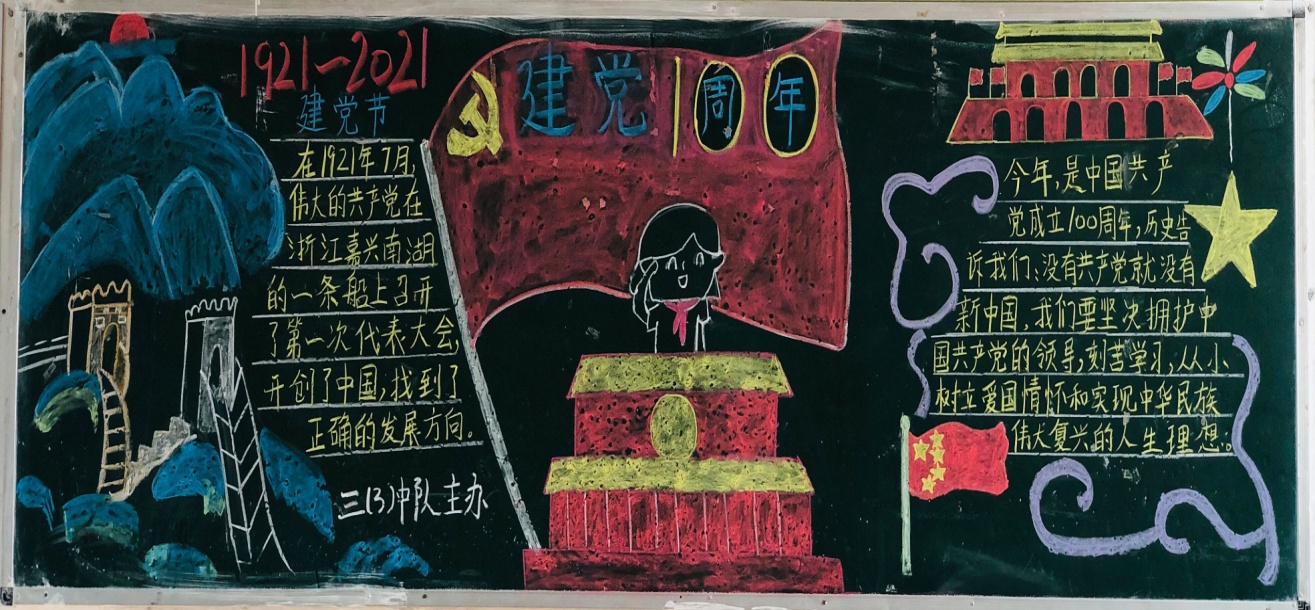 1921—2021
建党节
在1921年7月,
伟大的共产党在
浙江嘉兴南湖
的一条船上召开
了第一次代表大会,
开创了中国,找到了
正确的发展方向。
三(3)中队主办
建党100周年
今年,是中国共产
党成立100周年,历史告
诉我们、没有共产党就没有
新中国,我们要坚决拥护中
国共产党的领导,刻苦学习,从小
树立爱国情怀和实现中华民族
伟大复兴的人生理想。